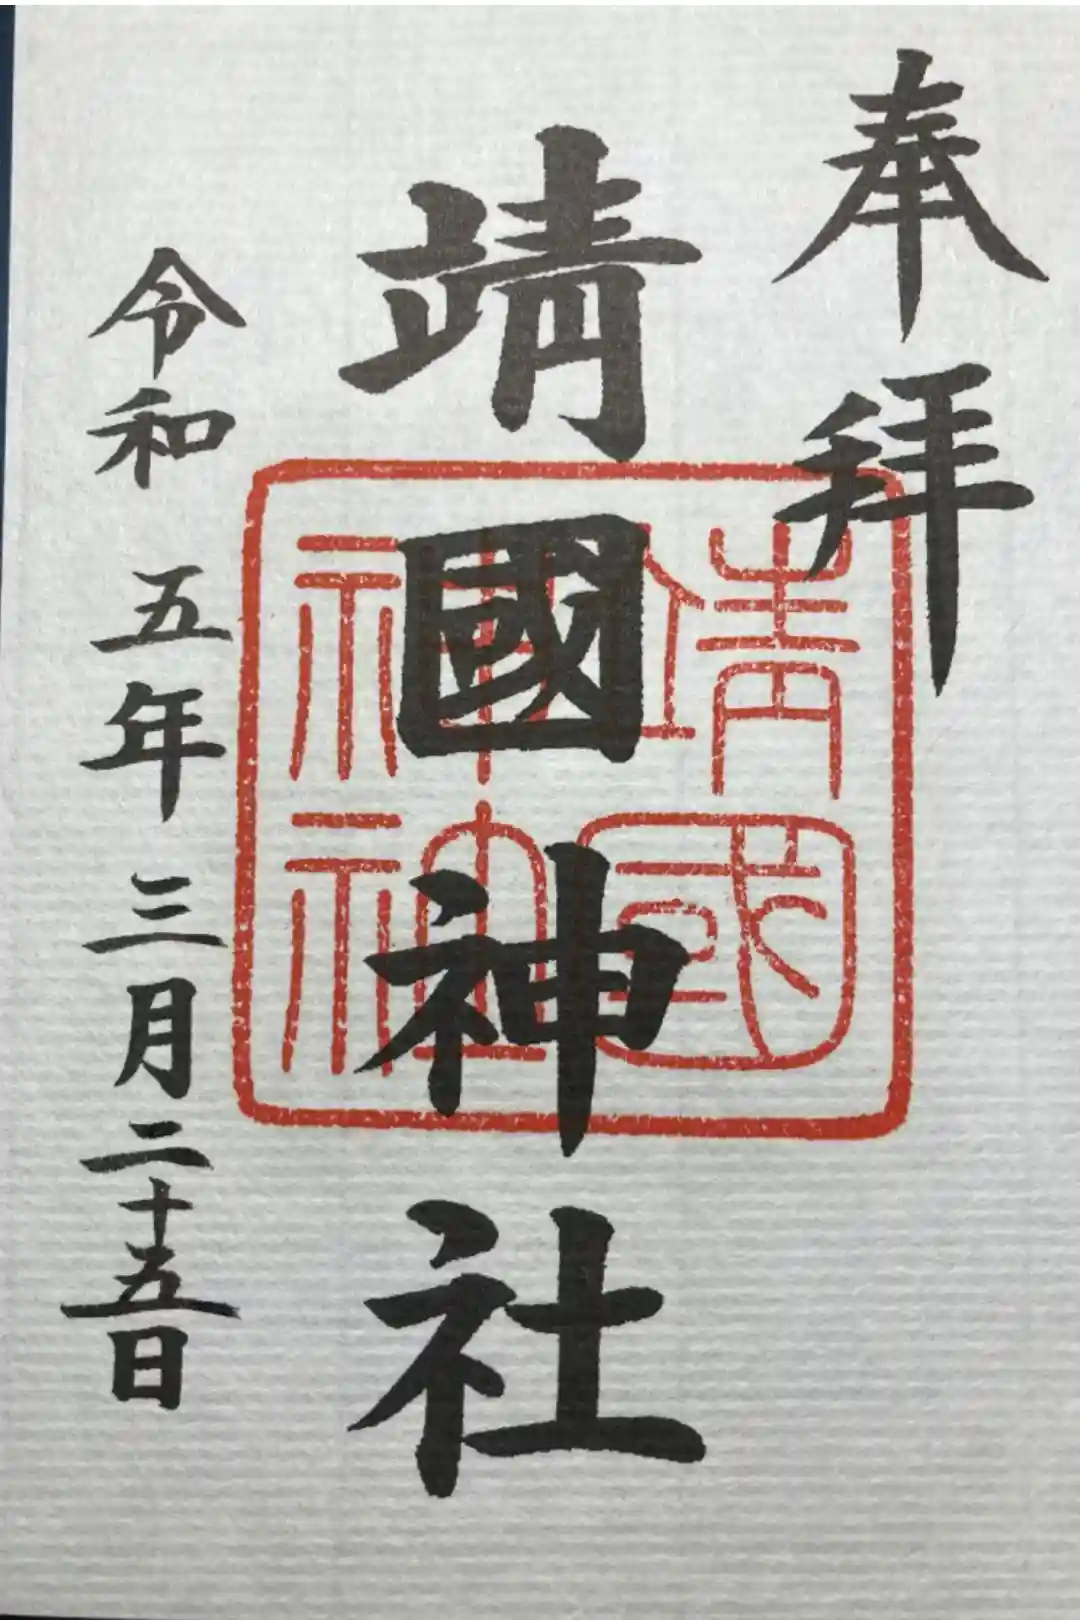 奉拝
靖國神社
靖國
神社
令和五年三月二十五日